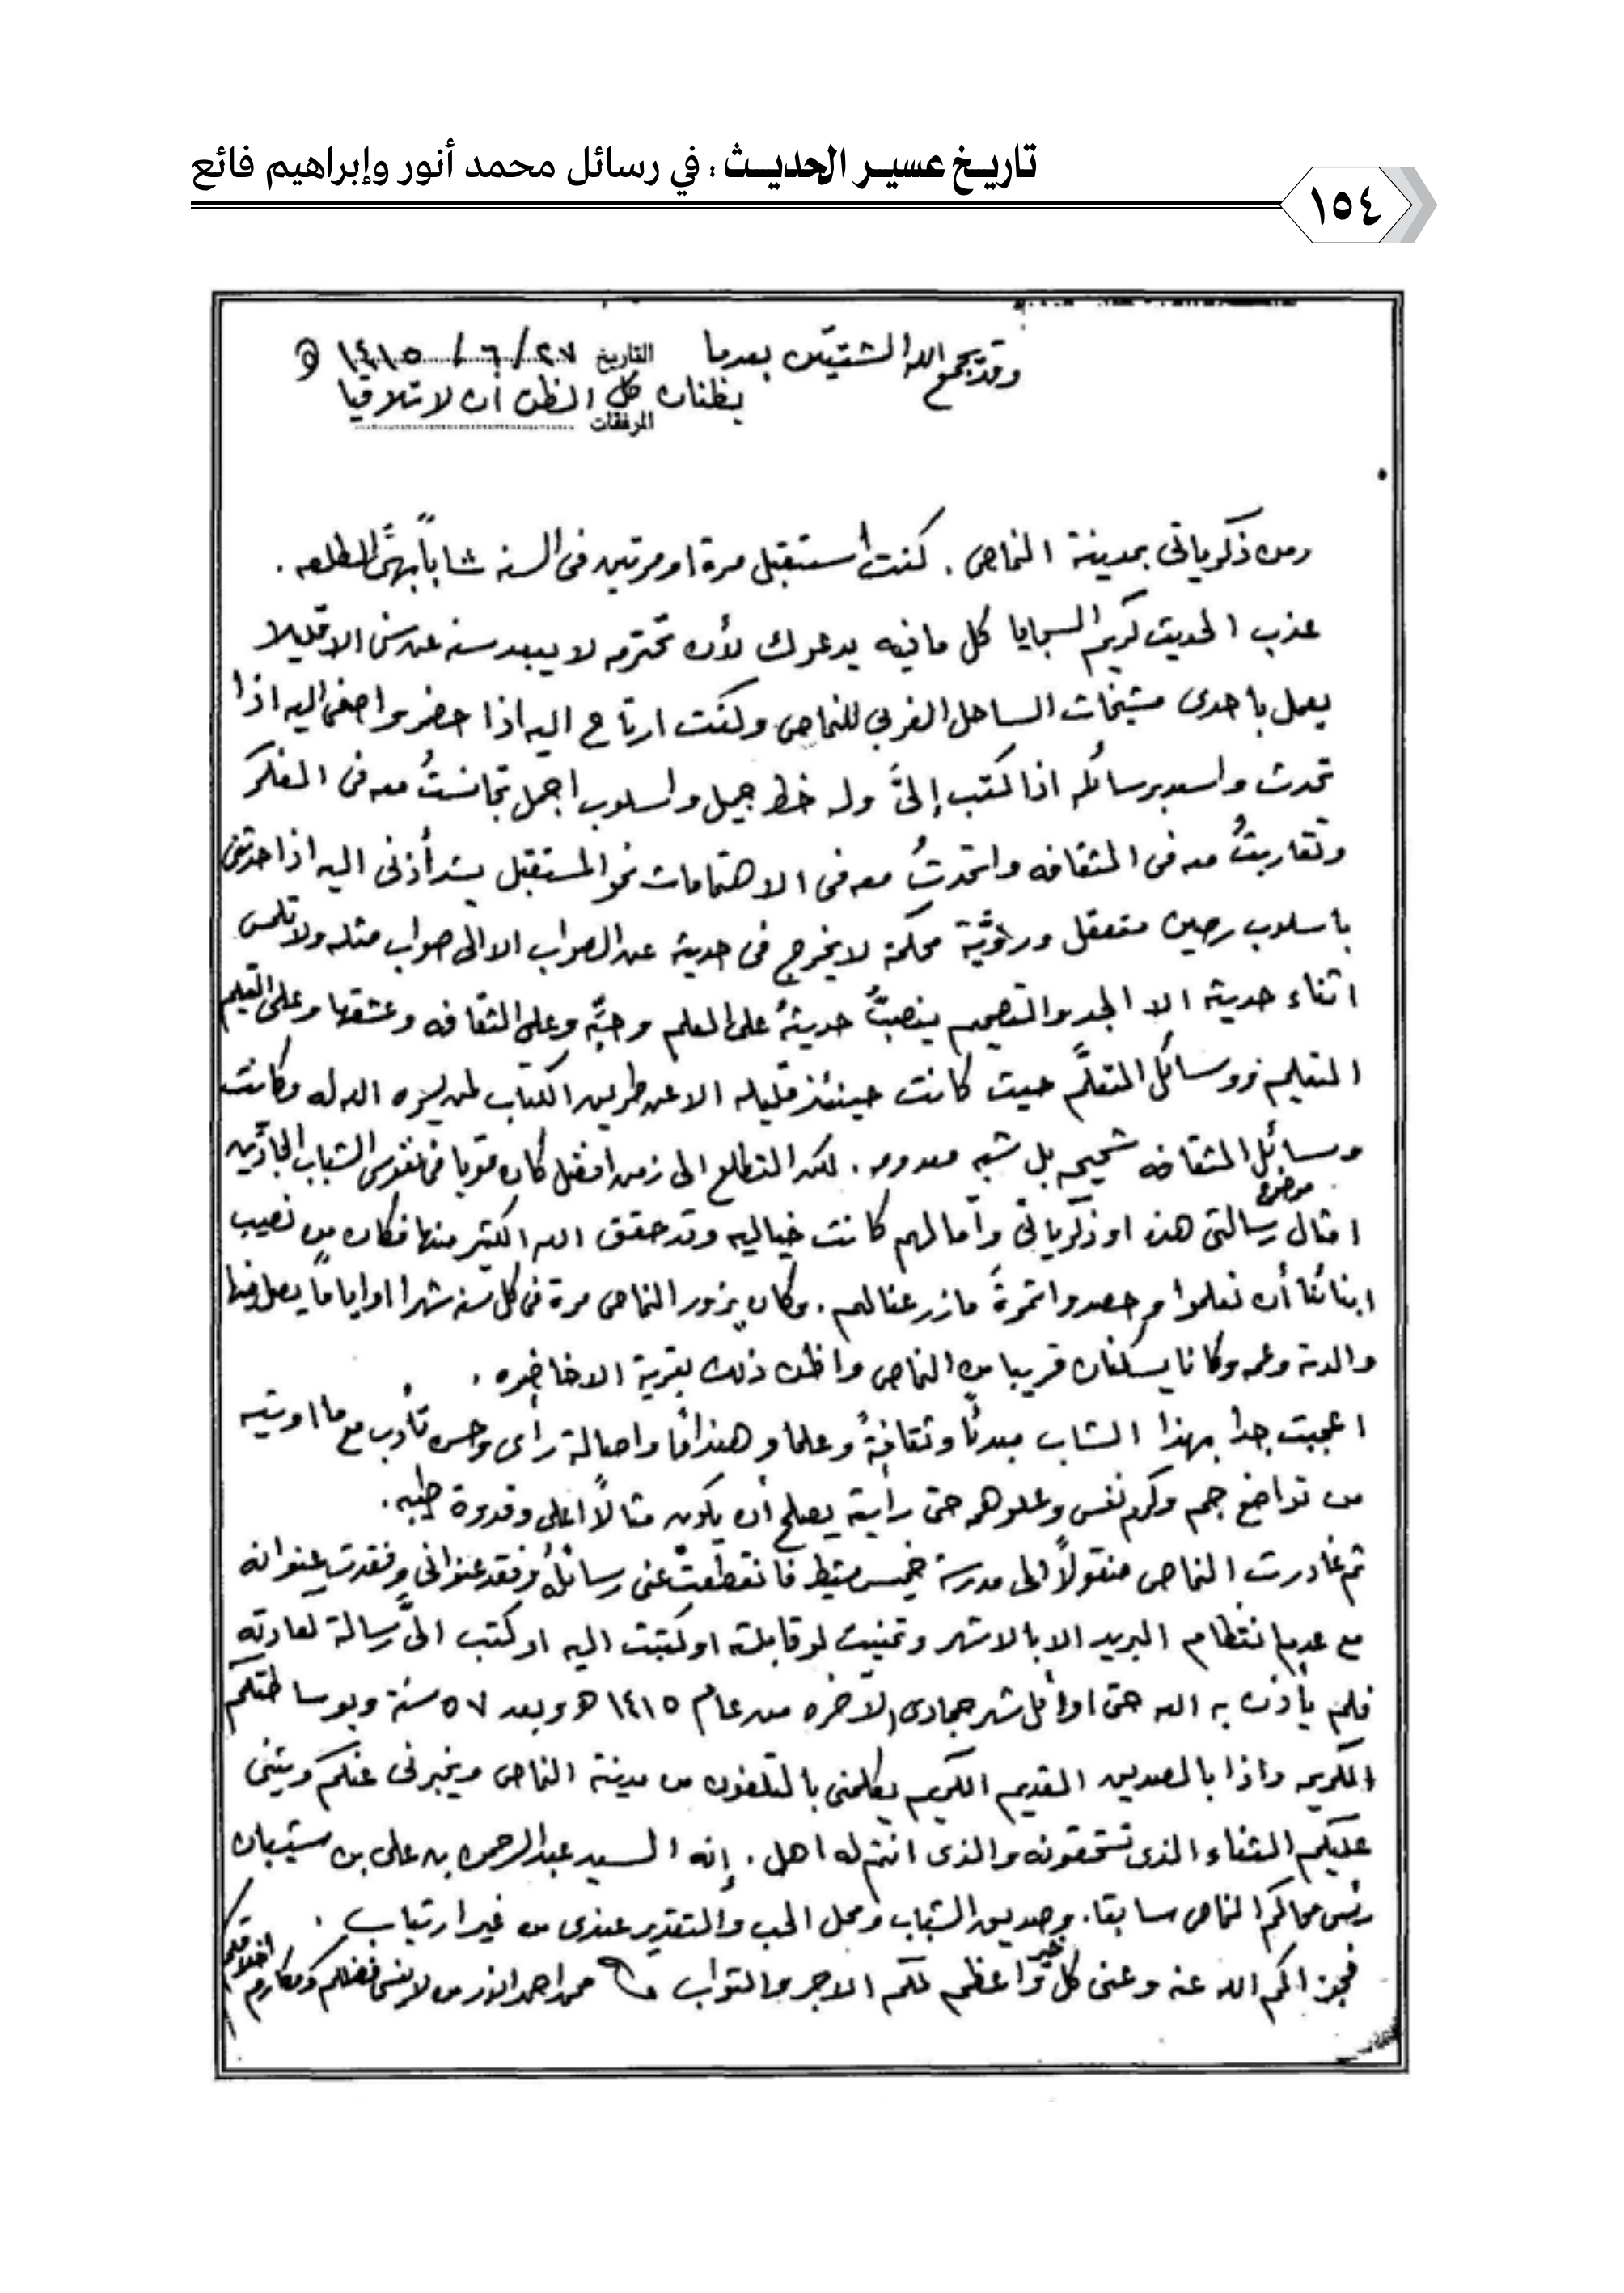 تاريخ عسير الحديث : في رسائل محمد أنور وإبراهيم فائع
١٥٤
وقد يجمع الله الشتيتين بعدما
التاريخ ٢٧ / ٦ / ١٤١٥ هـ
يظنان كل الظن أن لا تلاقيا
المرفقات
ومن ذكرياتى بمدينة النماص . كنت أستقبل مرة او مرتين فى السنه شاباً بهىَّ الطلعه .
عذب الحديث كريم السجايا كل ما فيه يدعوك لأن تحترمه لا يبعد سنه عن سنى الا قليلا
يعمل باحدى مشيخات الساحل الغربي للنماص وكنت ارتاح اليه اذا حضر واصغى اليه اذا
تحدث واسعد برسائله اذا كتب إلىَّ وله خط جميل واسلوب اجمل تجانستُ معه فى الفكر
وتقاربتُ معه فى الثقافه واتحدتُ معه فى الاهتمامات نحو المستقبل يشد أذنى اليه اذا حدثنى
باسلوب رصين متعقل وروَّية محكمة لا يخرج فى حديثه عن الصواب الا الى صواب مثله ولا تلمس
اثناء حديثه الا الجد والتصميم ينصبُّ حديثهُ على العلم وحبّه وعلى الثقافه وعشقها وعلى التعليم
التعليم ووسائل التعلُّم حيث كانت حينئذ قليله الا عن طريق الكتاب لمن يسره الله له وكانت
وسائل الثقافه شحيحه بل شبه معدومه . لكن التطلع الى زمن افضل كان قويا فى نفوس الشباب الجادّين
امثال موضوع رسالتى هذه او ذكرياتى وآمالهم كانت خياليه وقد حقق الله الكثير منها فكان من نصيب
ابنائنا أن تعلموا وحصدوا ثمرةَ ما زرعنا لهم . وكان يزور النماص مرة فى كل سنه شهرا او اياماً يصل فيها
والدته وعمه وكانا يسكنان قريبا من النماص واظن ذلك بقرية الاخاضره .
اعجبت جداً بهذا الشاب مبدئاً وثقافةً وعلما وهنداماً واصالة رأى وحسن تأدب مع ما اوتيه
من تواضع جم وكرم نفس وعلو همه حتى رأيته يصلح أن يكون مثالاً اعلى وقدوة طيبه .
ثم غادرت النماص منقولاً الى مدرسة خميس مشيط فانقطعتْ عنى رسائلُه وفقد عنوانى وفقدت عنوانه
مع عدم انتظام البريد الا بالاشهر وتمنيت لو قابلته او كتبت اليه او كتب الىَّ رسالة لعادته
فلم يأذن به الله حتى اوائل شهر جمادى الآخره من عام ١٤١٥ هـ وبعد ٥٧ سنة وبوساطتكم
الكريمه واذا بالصديق القديم الكريم يكلمنى بالتلفون من مدينة النماص ويخبرنى عنكم ويثنى
عليكم الثناء الذى تستحقونه والذى انتم له اهل . إنه السيد عبدالرحمن بن على بن شيبان
رئيس محاكم النماص سابقا . وصديق الشباب ومحل الحب والتقدير عندى من غير ارتياب .
فجزاكم الله عنه وعنى كل خير واعظم لكم الاجر والثواب محمد احمد انور من لا ينسى فضلكم ومكارم اخلاقكم